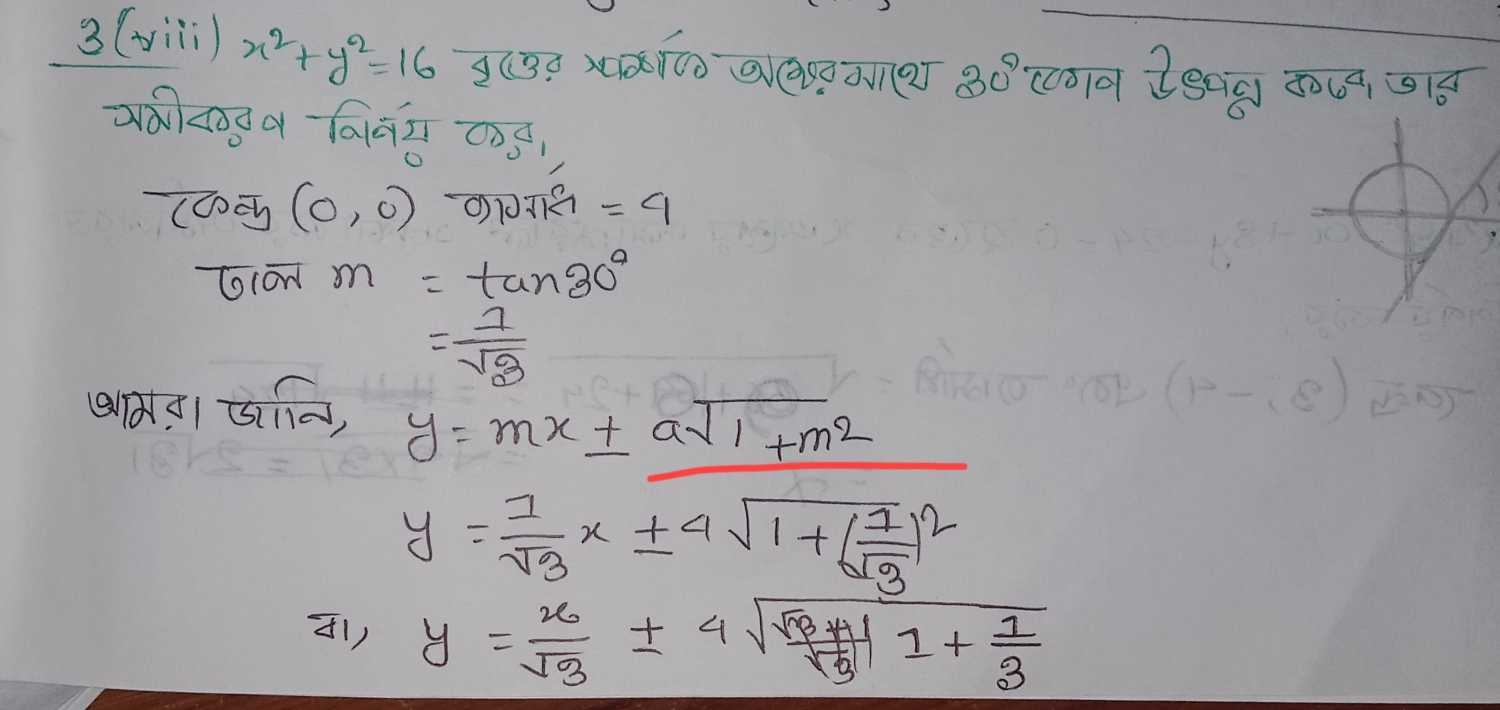 3(viii) x²+y²=16 বৃত্তের স্পর্শক অক্ষের সাথে 30° কোণ উৎপন্ন করে, তার
সমীকরণ নির্ণয় কর,
কেন্দ্র (0,0) ব্যাসার্ধ = 4
ঢাল m = tan30°
= 1/√3
আমরা জানি, y = mx ± a√1+m²
y = 1/√3 x ± 4√1+(1/√3)²
বা, y = x/√3 ± 4√1+1/3